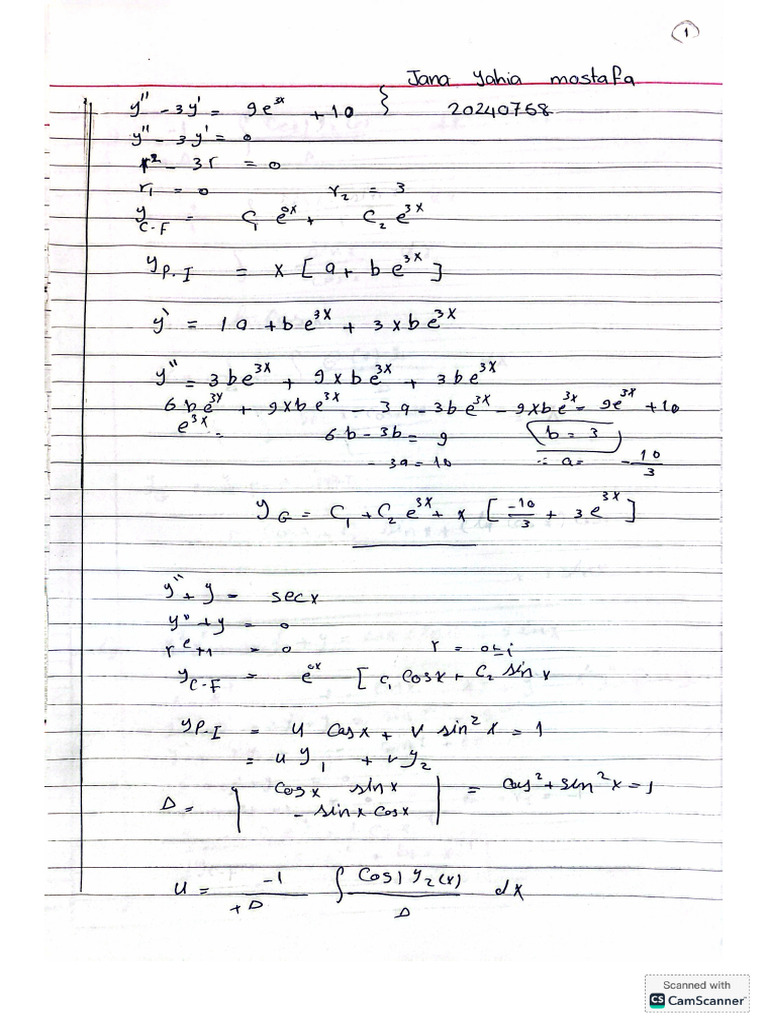 1
Jana Yahia mostafa
y'' - 3y' = 9e^3x + 10 } 20240768
y'' - 3y' = 0
r² - 3r = 0
r₁ = 0 r₂ = 3
y_C-F = C₁ e^0x + C₂ e^3x
y_P.I = x [ a + b e^3x ]
y' = 1a + b e^3x + 3xb e^3x
y'' = 3be^3x + 9xbe^3x + 3be^3x
6be^3x + 9xbe^3x - 3a - 3be^3x - 9xbe^3x = 9e^3x + 10
e^3x = 6b - 3b = 9 b = 3
- 3a = 10 ∴ a = -10/3
y_G = C₁ + C₂ e^3x + x [ -10/3 + 3e^3x ]
y'' + y = sec x
y'' + y = 0
r² + 1 = 0 r = 0 ± i
y_C-F = e^0x [ C₁ cosx + C₂ sin x
y_P.I = u cosx + v sin² x = 1
= u y₁ + v y₂
Δ = | cosx sinx | = cos² + sin² x = 1
| - sinx cosx |
u = -1/+Δ ∫ y₂(x)/Δ dx